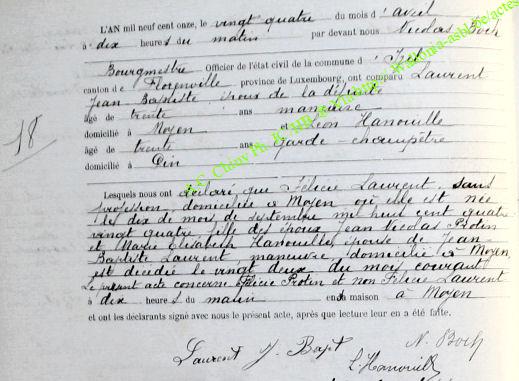 L'AN mil neuf cent onze, le vingt quatre du mois d'avril
à dix heures du matin par devant nous Nicolas Boch
Bourgmestre Officier de l'état civil de la commune d'Izel
canton de Florenville, province de Luxembourg, ont comparu Laurent
Jean Baptiste, époux de la défunte
âgé de trente ans manœuvre
domicilié à Moyen et Léon Hanouille
âgé de trente ans Garde-champêtre
domicilié à Pin
18
Lesquels nous ont déclaré que Félicie Laurent, sans
profession, domiciliée à Moyen où elle est née
le dix de mois de septembre mil huit cent quatre
vingt quatre, fille des époux Jean Nicolas Protin
et Marie Elisabeth Hanouille, épouse de Jean
Baptiste Laurent manœuvre, domicilié à Moyen,
est décédée le vingt deux du mois courant
Le présent acte concerne Félicie Protin et non Félicie Laurent
à dix heures du matin en sa maison à Moyen
et ont les déclarants signé avec nous le présent acte, après que lecture leur en a été faite.
Laurent J. Bapt N. Boch
L. Hanouille